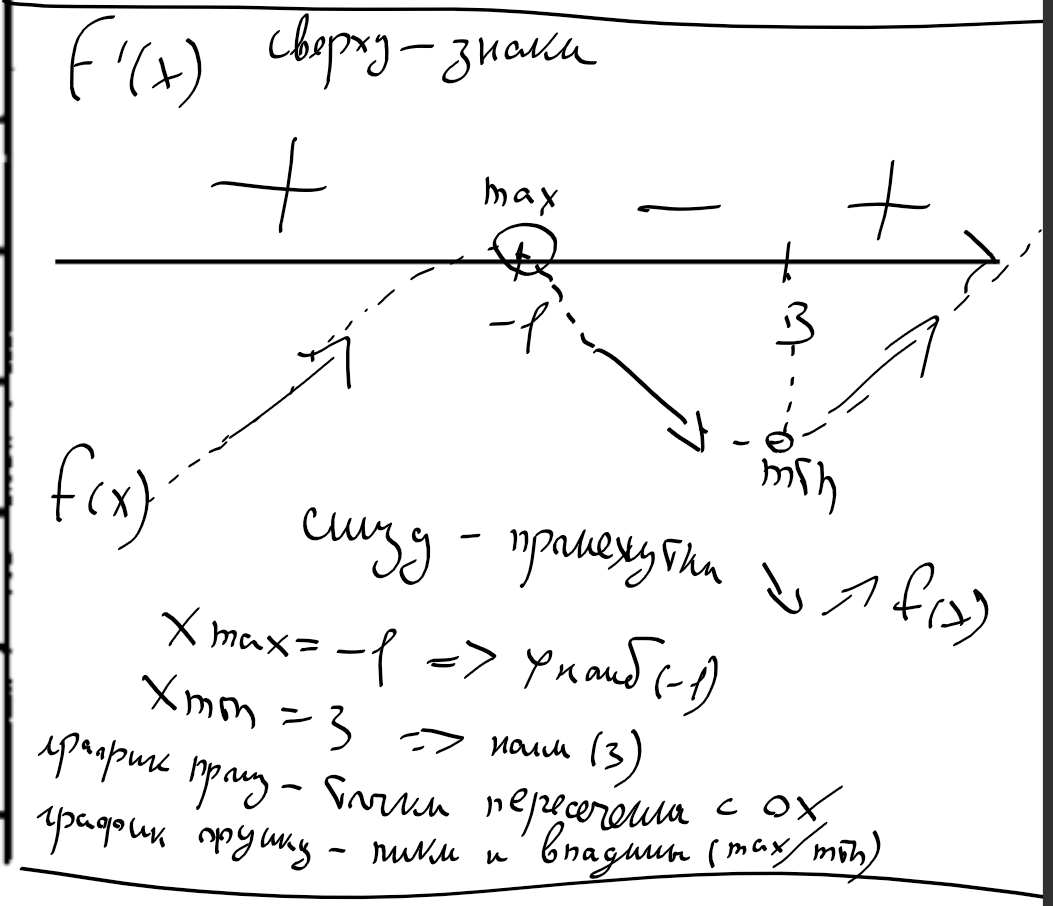 f'(x) сверху – знаки
+ max – +
-1 3
min
f(x)
снизу – промежутки ↘ ↗ f(x)
x max = -1 => y наиб (-1)
x min = 3 => наим (3)
график произ – точки пересечения с OX
график функц – пики и впадины (max/min)